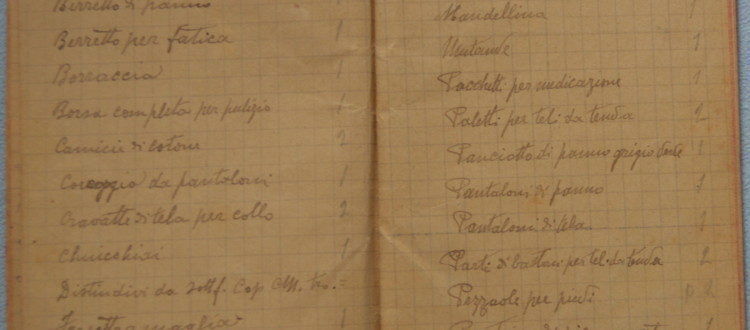 Berretto di panno 1
Berretto per fatica 1
Borraccia 1
Borsa completa per pulizia 1
Camicie di cotone 2
Coreggia da pantaloni 1
Cravatte di tela per collo 2
1
Distintivi da sottf. Cap.
Farsetto a maglia 1
Mantellina 1
Mutande 1
Pacchetti per medicazione 1
Paletti per teli da tenda 2
Panciotto di panno grigio verde 1
Pantaloni di panno 1
Pantaloni di tela 1
Parti di bastoni per tel. da tenda 2
Pezzuole per piedi 2